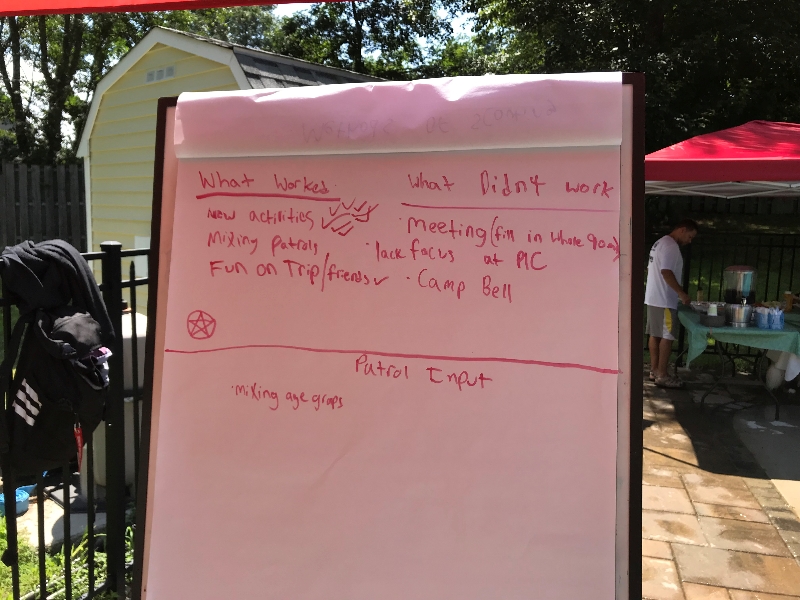 What Worked
New activities
Mixing Patrols
Fun on Trip/friends
What Didn't work
· Meeting (fill in whole
· lack focus at PLC
· Camp Bell
Patrol Input
· mixing age graps